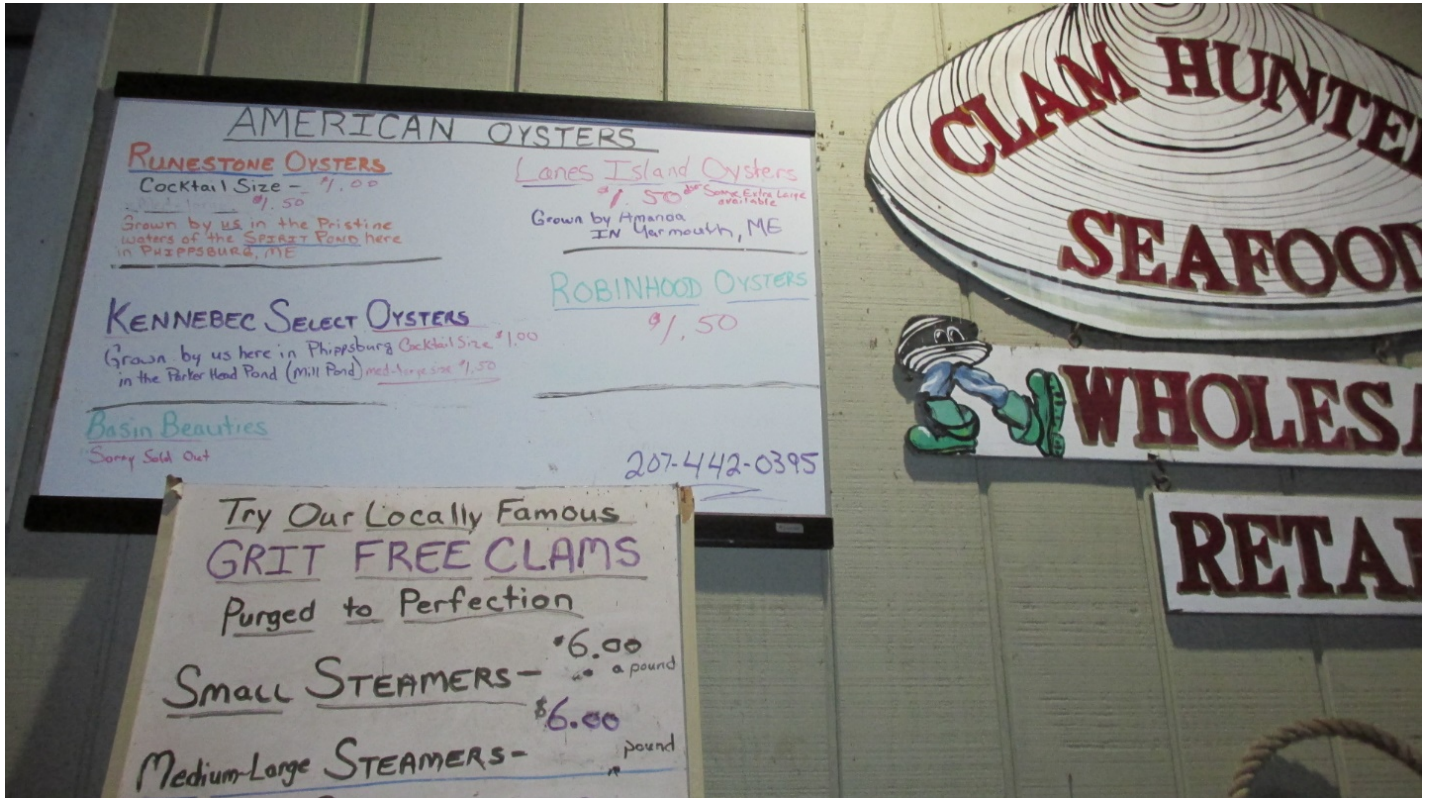 AMERICAN OYSTERS
RUNESTONE OYSTERS
Cocktail Size - $1.00
$1.50
Grown by us in the Pristine
waters of the SPIRIT POND here
in PHIPPSBURG, ME
KENNEBEC SELECT OYSTERS
Grown by us here in Phippsburg Cocktail Size $1.00
in the Parker Head Pond (Mill Pond) med-large size $1.50
Basin Beauties
Sorry Sold Out
Lanes Island Oysters
$1.50 Some Extra Large
available
Grown by Amanda
IN Yarmouth, ME
ROBINHOOD OYSTERS
$1.50
207-442-0395
Try Our Locally Famous
GRIT FREE CLAMS
Purged to Perfection
SMALL STEAMERS- $6.00
a pound
$6.00
Medium-Large STEAMERS- pound
CLAM HUNTE
SEAFOOD
WHOLESA
RETA